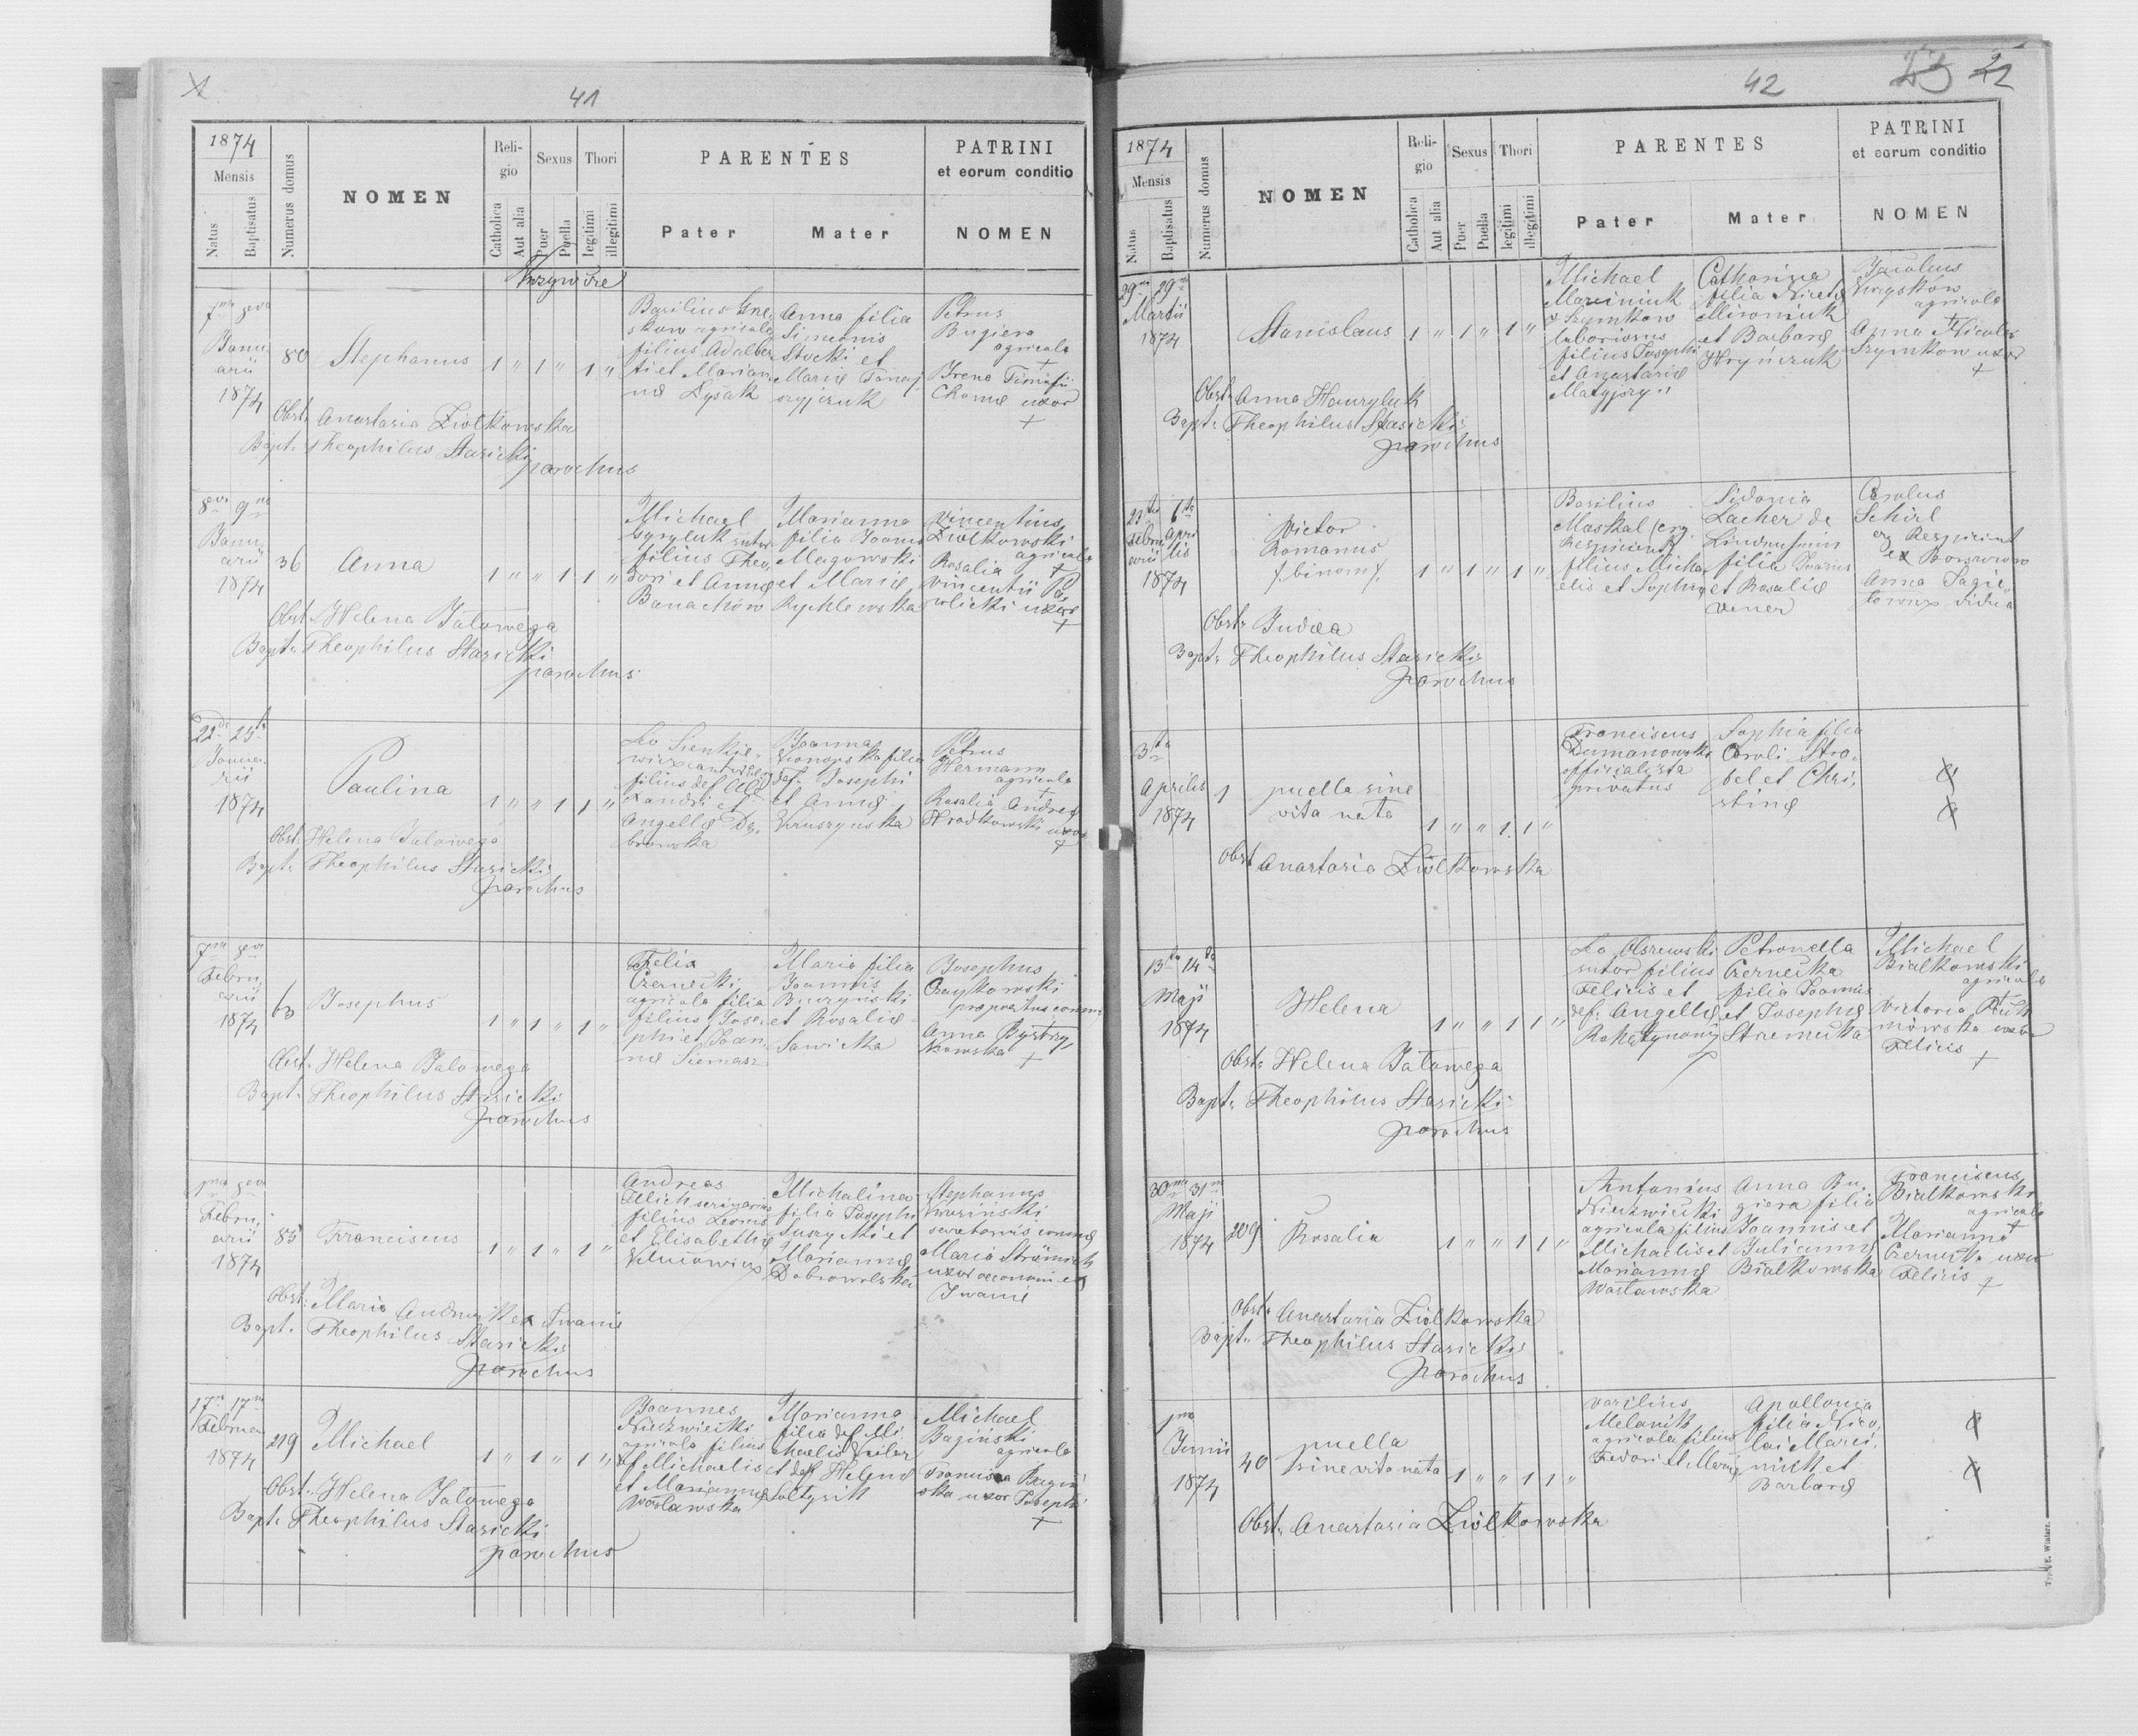 41
1874
Mensis
Natus
Baptisatus
Numerus domus
NOMEN
Reli-
gio
Catholica
Aut alia
Sexus
Puer
Puella
Thori
legitimi
illegitimi
PARENTES
Pater
Mater
PATRINI
et eorum conditio
NOMEN
Krzywcze
7ma 8va
Janu,
arii
1874
80
Stephanus
1 " 1 " 1 "
Basilius
agricola
filius Adalber
ti et Marian,
næ Łysak
Anna filia
Simeonis
Stocki et
Mariæ
Petrus
Bugiera
agricola
+
Irena Timofii
Chomæ uxor
+
Obst. Anastasia Ziółkowska
Bapt. Theophilus Stasicki
parochus
8va 9na
Janu,
arii
1874
36
Anna
1 " " 1 1 "
Michael
sutor
filius Theo,
dori et Annæ
Banachów
Marianna
filia Joannis
Magowski
et Mariæ
Rychlewska
Vincentius
Ziółkowski
agricola
+
Rosalia
Vincentii Pa,
wlicki uxor
+
Obst. Helena Jałowega
Bapt. Theophilus Stasicki
parochus
22da 25ta
Janua,
rii
1874
Paulina
1 " " 1 1 "
Leo Sienkie,
wicz
filius def. Ale,
xandri et
Angellæ Dą,
browska
Joanna
filia
def. Josephi
et Annæ
Kruszyńska
Petrus
Hermann
agricola
+
Rosalia Andreæ
Hrodkowski uxor
+
Obst. Helena Jalowega
Bapt. Theophilus Stasicki
parochus
7ma 8va
Febru,
arii
1874
63
Josephus
1 " 1 " 1 "
Felix
Czernecki
agricola filia
filius Jose,
phi et Joan,
næ Siemasz
Maria filia
Joannis
Buczyński
et Rosaliæ
Sawicka
Josephus
Czaykowski
præpositus comm.
Anna Bystrzy,
kowska
+
Obst. Helena Jalowega
Bapt. Theophilus Stasicki
parochus
1ma 8va
Febru,
arii
1874
85
Franciscus
1 " 1 " 1 "
Andreas
Illich
filius Leonis
et Elisabethæ
Michalina
filia Josephi
Suszycki et
Mariannæ
Dobrowolska
Stephanus
secretarius comunæ
Maria
uxor oeconomi ex
Iwanie
Obst. Maria Andrusik ex Iwanie
Bapt. Theophilus Stasicki
parochus
17ma 17ma
Februa,
1874
219
Michael
1 " 1 " 1 "
Joannes
Niedzwiecki
agricola filius
Michaelis
et Mariannæ
Wasławska
Marianna
filia def. Mi,
chaelis
et def. Helenæ
Soltysik
Michael
Bagiński
agricola
Francisca Bagiń
ska uxor Josephi
+
Obst. Helena Jalowega
Bapt. Theophilus Stasicki
parochus
42
21
1874
Mensis
Natus
Baptisatus
Numerus domus
NOMEN
Reli-
gio
Catholica
Aut alia
Sexus
Puer
Puella
Thori
legitimi
illegitimi
PARENTES
Pater
Mater
PATRINI
et eorum conditio
NOMEN
29na 29na
Martii
1874
Stanislaus
1 " 1 " 1 "
Michael
Marciniuk
v Szymkow
laboriosus
filius Josephi
et Anastasiæ
Catharina
filia
Mironiuk
et Barbaræ
Hryńczuk
Jacobus
agricola
+
Anna Nicolai
Szymkow uxor
+
Obst. Anna Hawryluk
Bapt. Theophilus Stasicki
parochus
6ta
Febru Apri
arii lis
1874
Victor
Romanus
/binom/
1 " 1 " 1 "
Basilius
Moskal
Respicient
filius Micha,
elis et Sophiæ
Sidonia
Lacher de
filia Joannis
et Rosaliæ
Vener
Carolus
Schirl
Respicient
ex
Anna
vidua
Obst. Judæa
Bapt. Theophilus Stasicki
parochus
3tia
Aprilis
1874
1
puella sine
vita nata
1 " " 1 1 "
Franciscus
Dumanowski
officialista
privatus
Sophia filia
Caroli Stro,
bel et Chri,
stinæ
Obst. Anastasia Ziółkowska
13ta 14ta
Maji
1874
Helena
1 " " 1 1 "
Leo Olszewski
sutor filius
Felicis et
def. Angellæ
Petronella
Czernecka
filia Joannis
et Josephæ
Stremecka
Michael
Bialkowski
agricola
+
Victoria
uxor
Felicis
+
Obst. Helena Jałowega
Bapt. Theophilus Stasicki
parochus
30ma 31ma
Maji
1874
209
Rosalia
1 " " 1 1 "
Antonius
Niedzwiecki
agricola filius
Michaelis et
Mariannæ
Wasławska
Anna Bu,
giera filia
Joannis et
Juliannæ
Bialkowska
Franciscus
Bialkowski
agricola
+
Marianna
Czernecka uxor
Felicis
+
Obst. Anastasia Ziółkowska
Bapt. Theophilus Stasicki
parochus
1ma
Junii
1874
40
puella
sine vita nata
1 " " 1 1 "
Vasilius
Melanik
agricola filius
Fedori et Mariæ
Apollonia
filia Nico,
lai Marci,
niuk et
Barbaræ
Obst. Anastasia Ziółkowska
Typ. E. Winiarz.